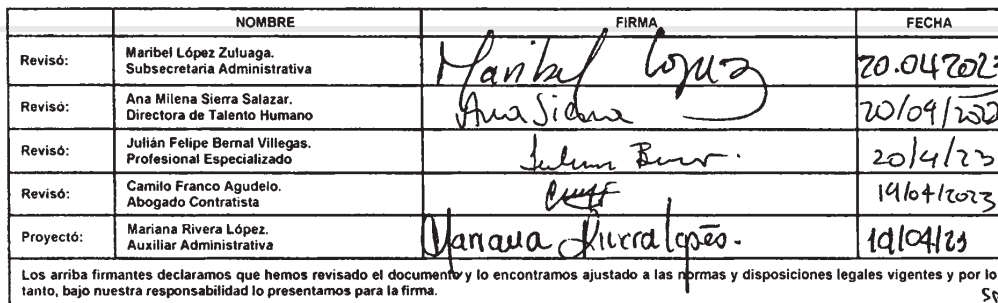 NOMBRE FIRMA FECHA
Revisó: Maribel López Zuluaga.
Subsecretaria Administrativa
Maribel López 20.04.202
Revisó: Ana Milena Sierra Salazar.
Directora de Talento Humano
Ana Sierra 20/04/202
Revisó: Julián Felipe Bernal Villegas.
Profesional Especializado
20/4/23
Revisó: Camilo Franco Agudelo.
Abogado Contratista
19/04/2023
Proyectó: Mariana Rivera López.
Auxiliar Administrativa
Mariana Rivera López. 19/04/23
Los arriba firmantes declaramos que hemos revisado el documento y lo encontramos ajustado a las normas y disposiciones legales vigentes y por lo
tanto, bajo nuestra responsabilidad lo presentamos para la firma.